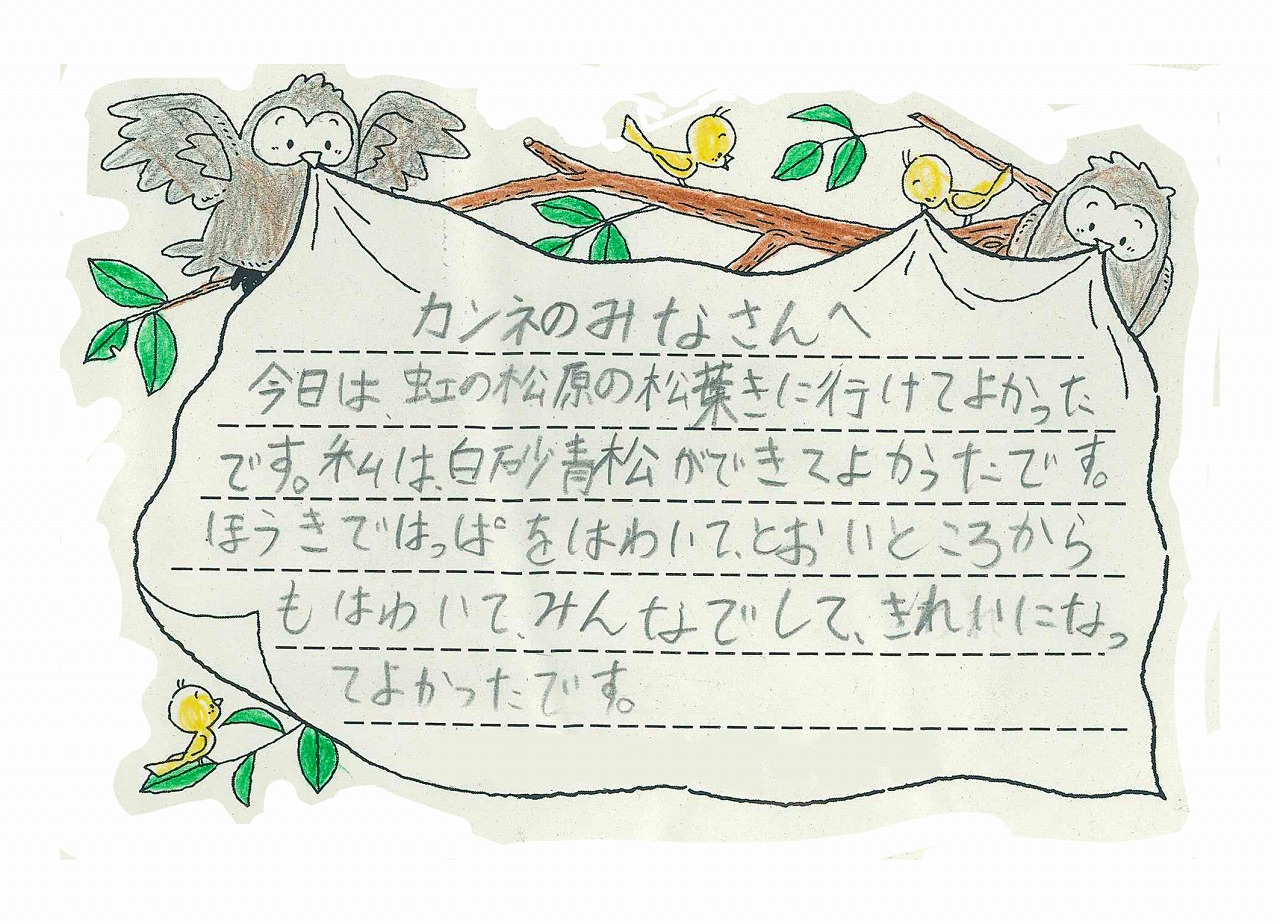 カンネのみなさんへ
今日は、虹の松原の松葉きに行けてよかった
です。私は、白砂青松ができてよかったです。
ほうきではっぱをはわいて、とおいところから
もはわいて、みんなでして、きれいになっ
てよかったです。